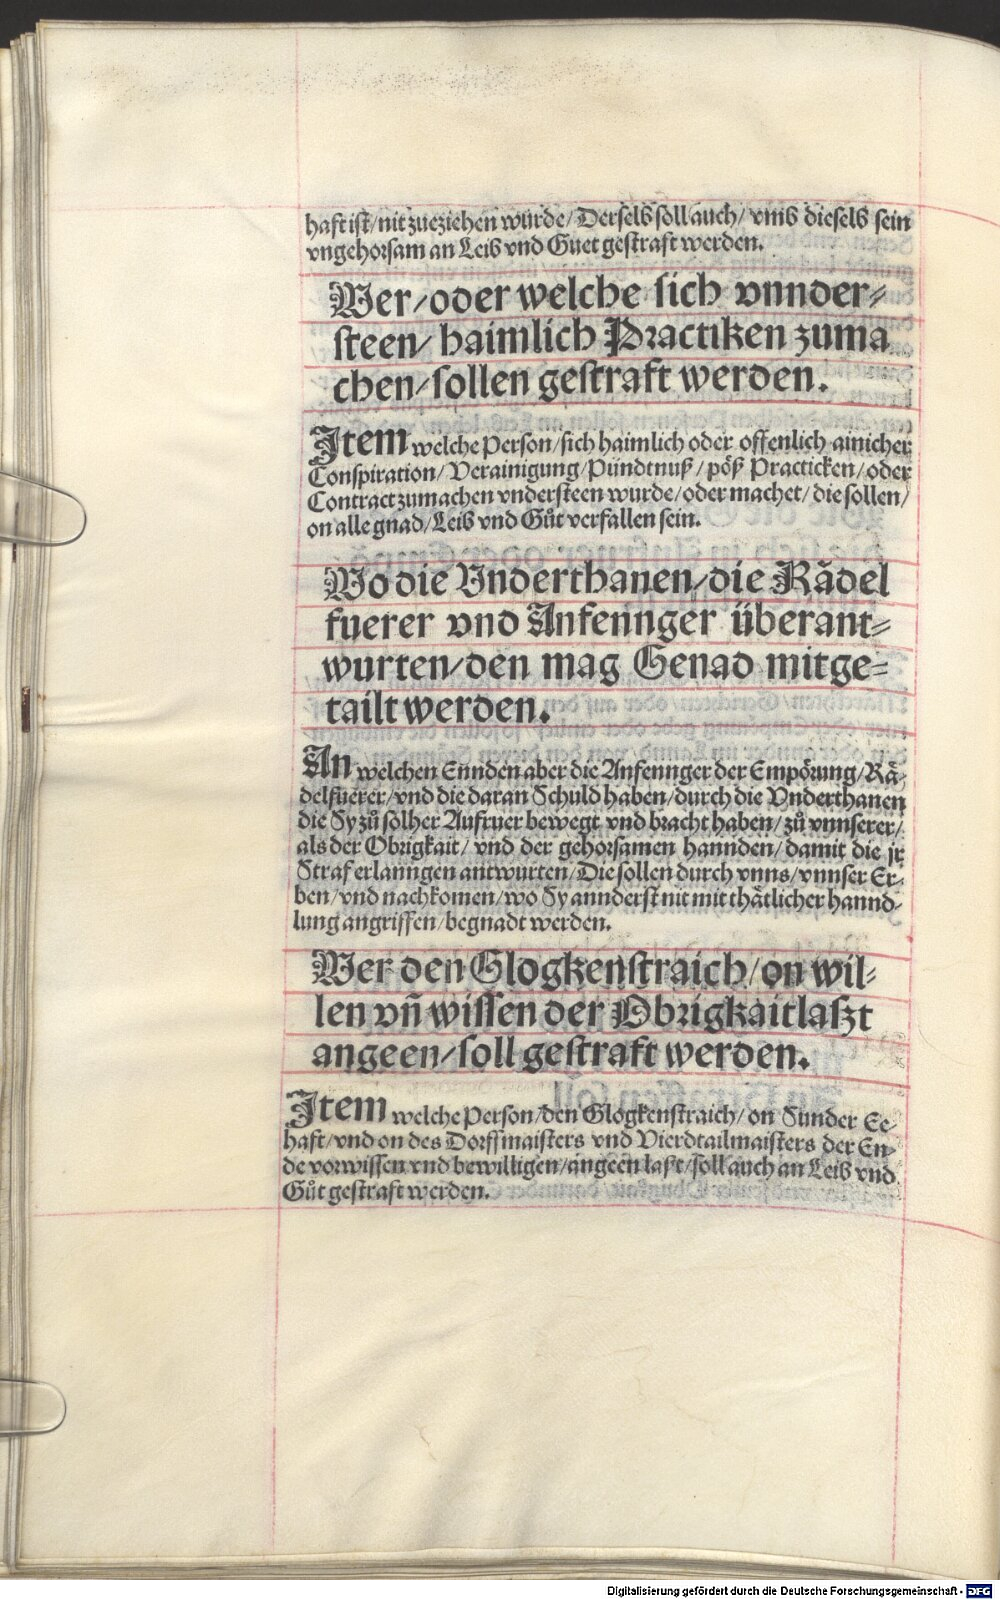 haft ist/ nit zueziehen wurde/ Derselb soll auch/ vmb dieselb sein
vngehorsam an Leib vnd Guet gestraft werden.
Wer/ oder welche sich vnnder-
steen/ haimlich Practiken zuma
chen/ sollen gestraft werden.
Item welche Person/ sich haimlich oder offenlich ainicher
Conspiration/ Verainigung/ Pündtnuß/ pöß Practicken/ oder
Contract zumachen vndersteen wurde/ oder machet/ die sollen/
on alle gnad/ Leib vnd Gůt verfallen sein.
Wo die Vnderthanen/ die Rädel
fuerer vnd Anfennger überant-
wurten/ den mag Genad mitge-
tailt werden.
An welchen Ennden aber die Anfennger der Empörung/ Rä-
delfuerer/ vnd die daran Schuld haben/ durch die Vnderthanen
die Sy zů solher Aufruer bewegt vnd bracht haben/ zů vnnserer/
als der Obrigkait/ vnd der gehorsamen hannden/ damit die jr
Straf erlanngen antwurten/ Die sollen durch vnns/ vnnser Er-
ben/ vnd nachkomen/ wo Sy annderst nit mit thätlicher hannd-
lung angriffen/ begnadt werden.
Wer den Glogkenstraich/ on wil-
len vn̄ wissen der Obrigkait laszt
angeen/ soll gestraft werden.
Item welche Person/ den Glogkenstraich/ on Sunder Ee-
haft/ vnd on des Dorffmaisters vnd Vierdtailmaisters der En-
de vorwissen vnd bewilligen/ angeen laßt/ soll auch an Leib vnd
Gůt gestraft werden.
Digitalisierung gefördert durch die Deutsche Forschungsgemeinschaft - DFG